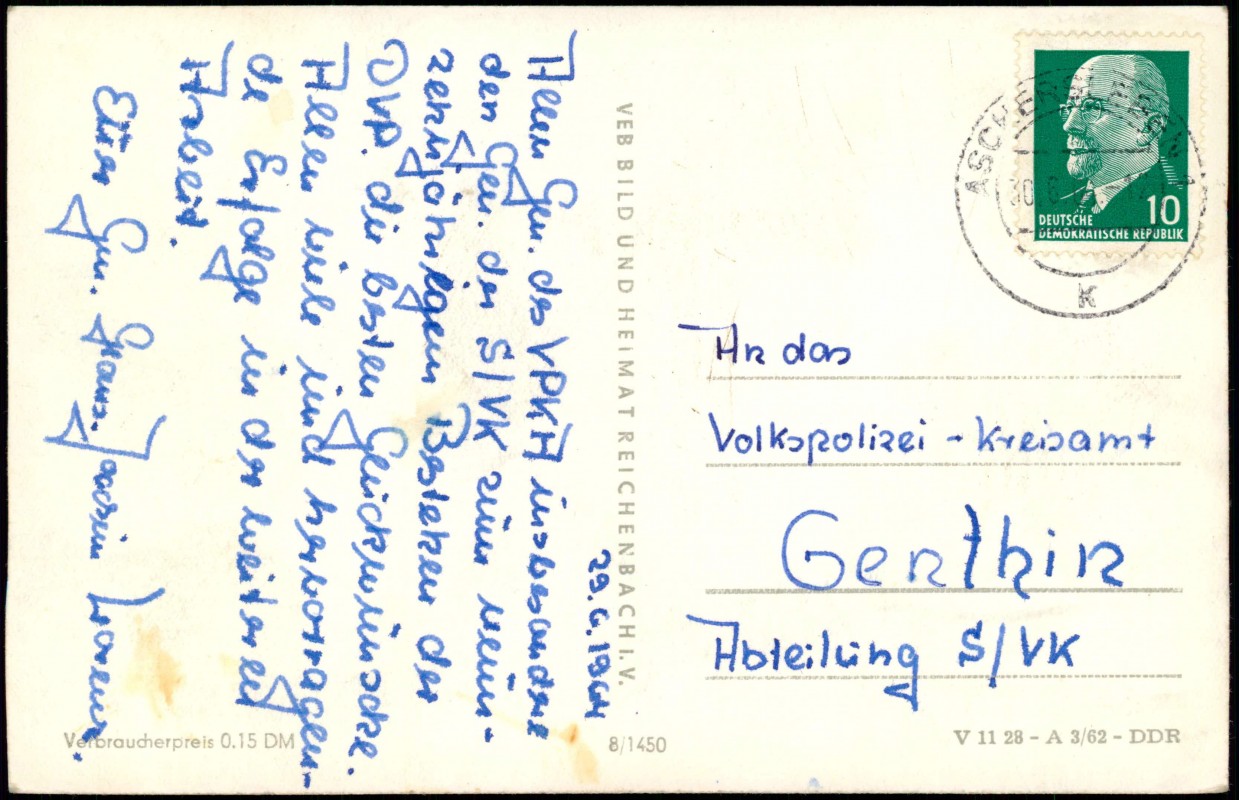 29.6.1964
Allen Gen. des VPKA insbesondere
den Gen. der S/VK zum neun-
zehnjährigem Bestehen der
DVP. die besten Glückwünsche.
Allen viele und hervorragen-
de Erfolge in der weiteren
Arbeit.
Euer Gen. Hans-Joachim
VEB BILD UND HEIMAT REICHENBACH I. V.
ASCHERSLEBEN
30.6.
k
DEUTSCHE
DEMOKRATISCHE REPUBLIK
10
An das
Volkspolizei - Kreisamt
Genthin
Abteilung S/VK
Verbraucherpreis 0.15 DM
8/1450
V 11 28 - A 3/62 - DDR